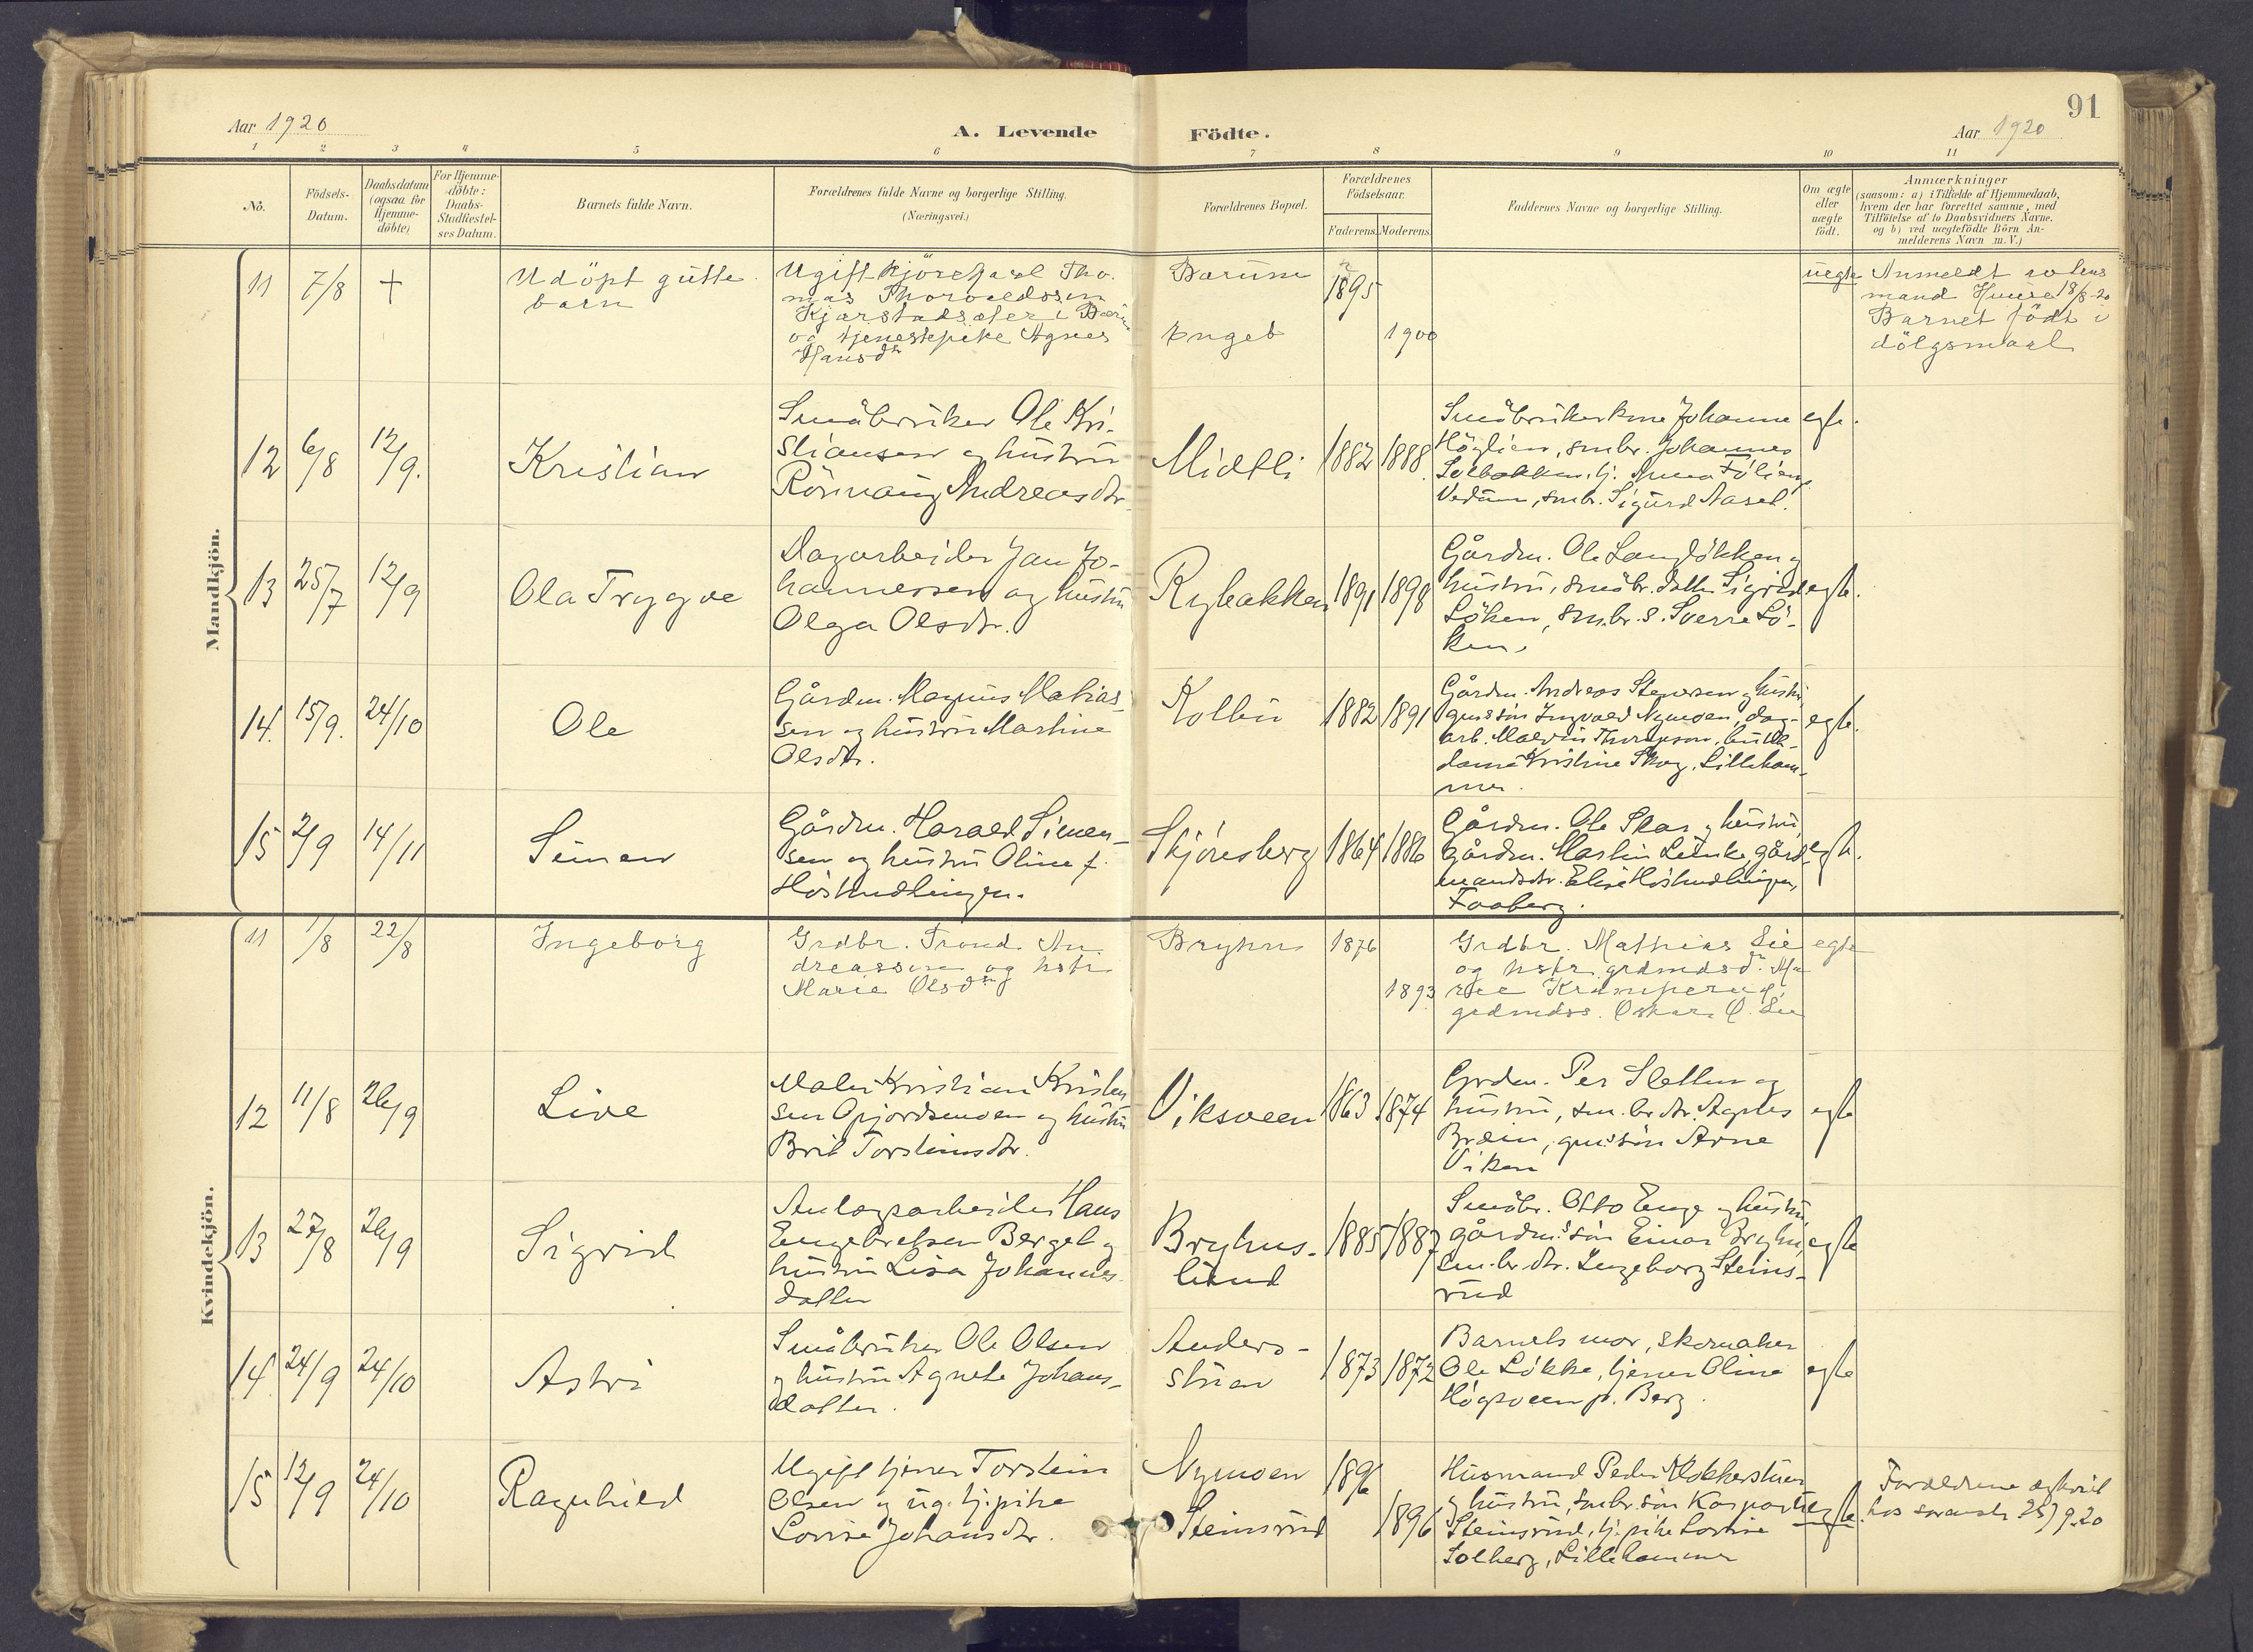 91
Aar 1920
A. Levende
Födte.
Aar 1920
1 2 3 4 5 6 7 8 9 10 11
No.
Födsels-
Datum.
Daabsdatum
(ogsaa for
Hjemme-
döbte)
For Hjemme-
döbte:
Daabs-
Stadfæstel-
ses Datum.
Barnets fulde Navn.
Forældrenes fulde Navne og borgerlige Stilling.
(Næringsvei.)
Forældrenes Bopæl.
Forældrenes
Födselsaar.
Faderens.
Moderens.
Faddernes Navne og borgerlige Stilling.
Om ægte
eller
uægte
födt.
Anmærkninger
(saasom: a) i Tilfælde af Hjemmedaab,
hvem der har forrettet samme, med
Tilföielse af to Daabsvidners Navne.
og b) ved uægtefödte Börn An-
melderens Navn m. V.)
Mandkjön.
11
7/8
+
Udöpt gutte
barn
Ugift kjörekarl Tho-
mas Thorvaldssen
Kjærstadsæter i
og tjenestepike Agnes
Hansdr
Enget
1895
1900
uegte
Anmeldt av lens
mand 18/8-20
Barnet född i
dölgsmaal
12
6/8
12/9.
Kristian
Småbruker Ole Kri-
stiansen og hustru
Rönnaug Andreasdtr.
Midtli
1882
1888
Småbrukerkone Johanne
Höglien, smbr. Johannes
Solbakken, tj. Anna
smbr. Sigurd Aaset.
egte.
13
25/7
12/9
Ola Trygve
Dagarbeider Jan Jo-
hannessen og hustru
Olga Olsdtr.
Rybakken
1891
1898
Gårdm. Ole Langlökken og
hustru, småbr. datter Sigrid
Löken, smbr. s. Sverre Lö-
ken.
egte.
14.
15/9.
24/10
Ole
Gårdm. Magnus Matias-
sen og hustru Martine
Olsdtr.
Kolbu
1882
1891
Gårdm. Andreas Stenersen og hustru
Ingvald Nymoen, dag-
arb. butik-
dame Kristine Skog, Lilleham-
mer.
egte.
15
2/9
14/11
Simen
Gårdm. Harald Simen-
sen og hustru Oline f.
Skjönsberg
1864
1886
Gårdm. Ole Skar og hustru,
gårdm. Martin gård-
mandsdtr. Elise
Faaberg.
egte.
Kvindekjön.
11
1/8
22/8
Ingeborg
Grdbr. Trond An
dreassen og hstr
Marie Olsdr
Bryhn
1876
1893
Grdbr. Mathias Lie
og hstr. grdmdsd. Ma
rie
grdmdss. Oskar O. Lie
egte
12
11/8
26/9
Live
Maler Kristian Kristen
sen Opjordsmoen og hustru
Brit Torsteinsdtr.
Viksveen
1863
1874
Grdm. Per Sletten og
hustru, sm. br. dtr. Agnes
Bræin, Arne
Viken
egte
13
27/8
26/9
Sigrid
Anlægsarbeider Hans
Engebretsen Berget og
hustru Lisa Johannes-
datter
Bryhns-
lund
1885
1887
Småbr. Otto Enge og hustru,
gårdm.s sön Einar Bryhn,
sm.br. dtr. Ingeborg Steins-
rud
egte
14
24/9
24/10
Astri
Småbruker Ole Olsen
og hustru Agnete Johans-
datter.
Anders-
stuen
1873
1872
Barnets mor, skomaker
Ole Lökke, tjener Oline
Högsveen p. Berg.
egte
15
12/9
24/10
Ragnhild
Ugift tjener Torstein
Olsen og ug. tj.pike
Lovise Johansdtr.
Nymoen
Steinsrud
1896
1896
Husmand Peder Klokkerstuen
og hustru, smbr. sön Kaspar
Steinsrud, tj. pike Lovise
Solberg, Lillehammer
uegte.
Forældrene egteviet
hos sorenskr. 25/9.20